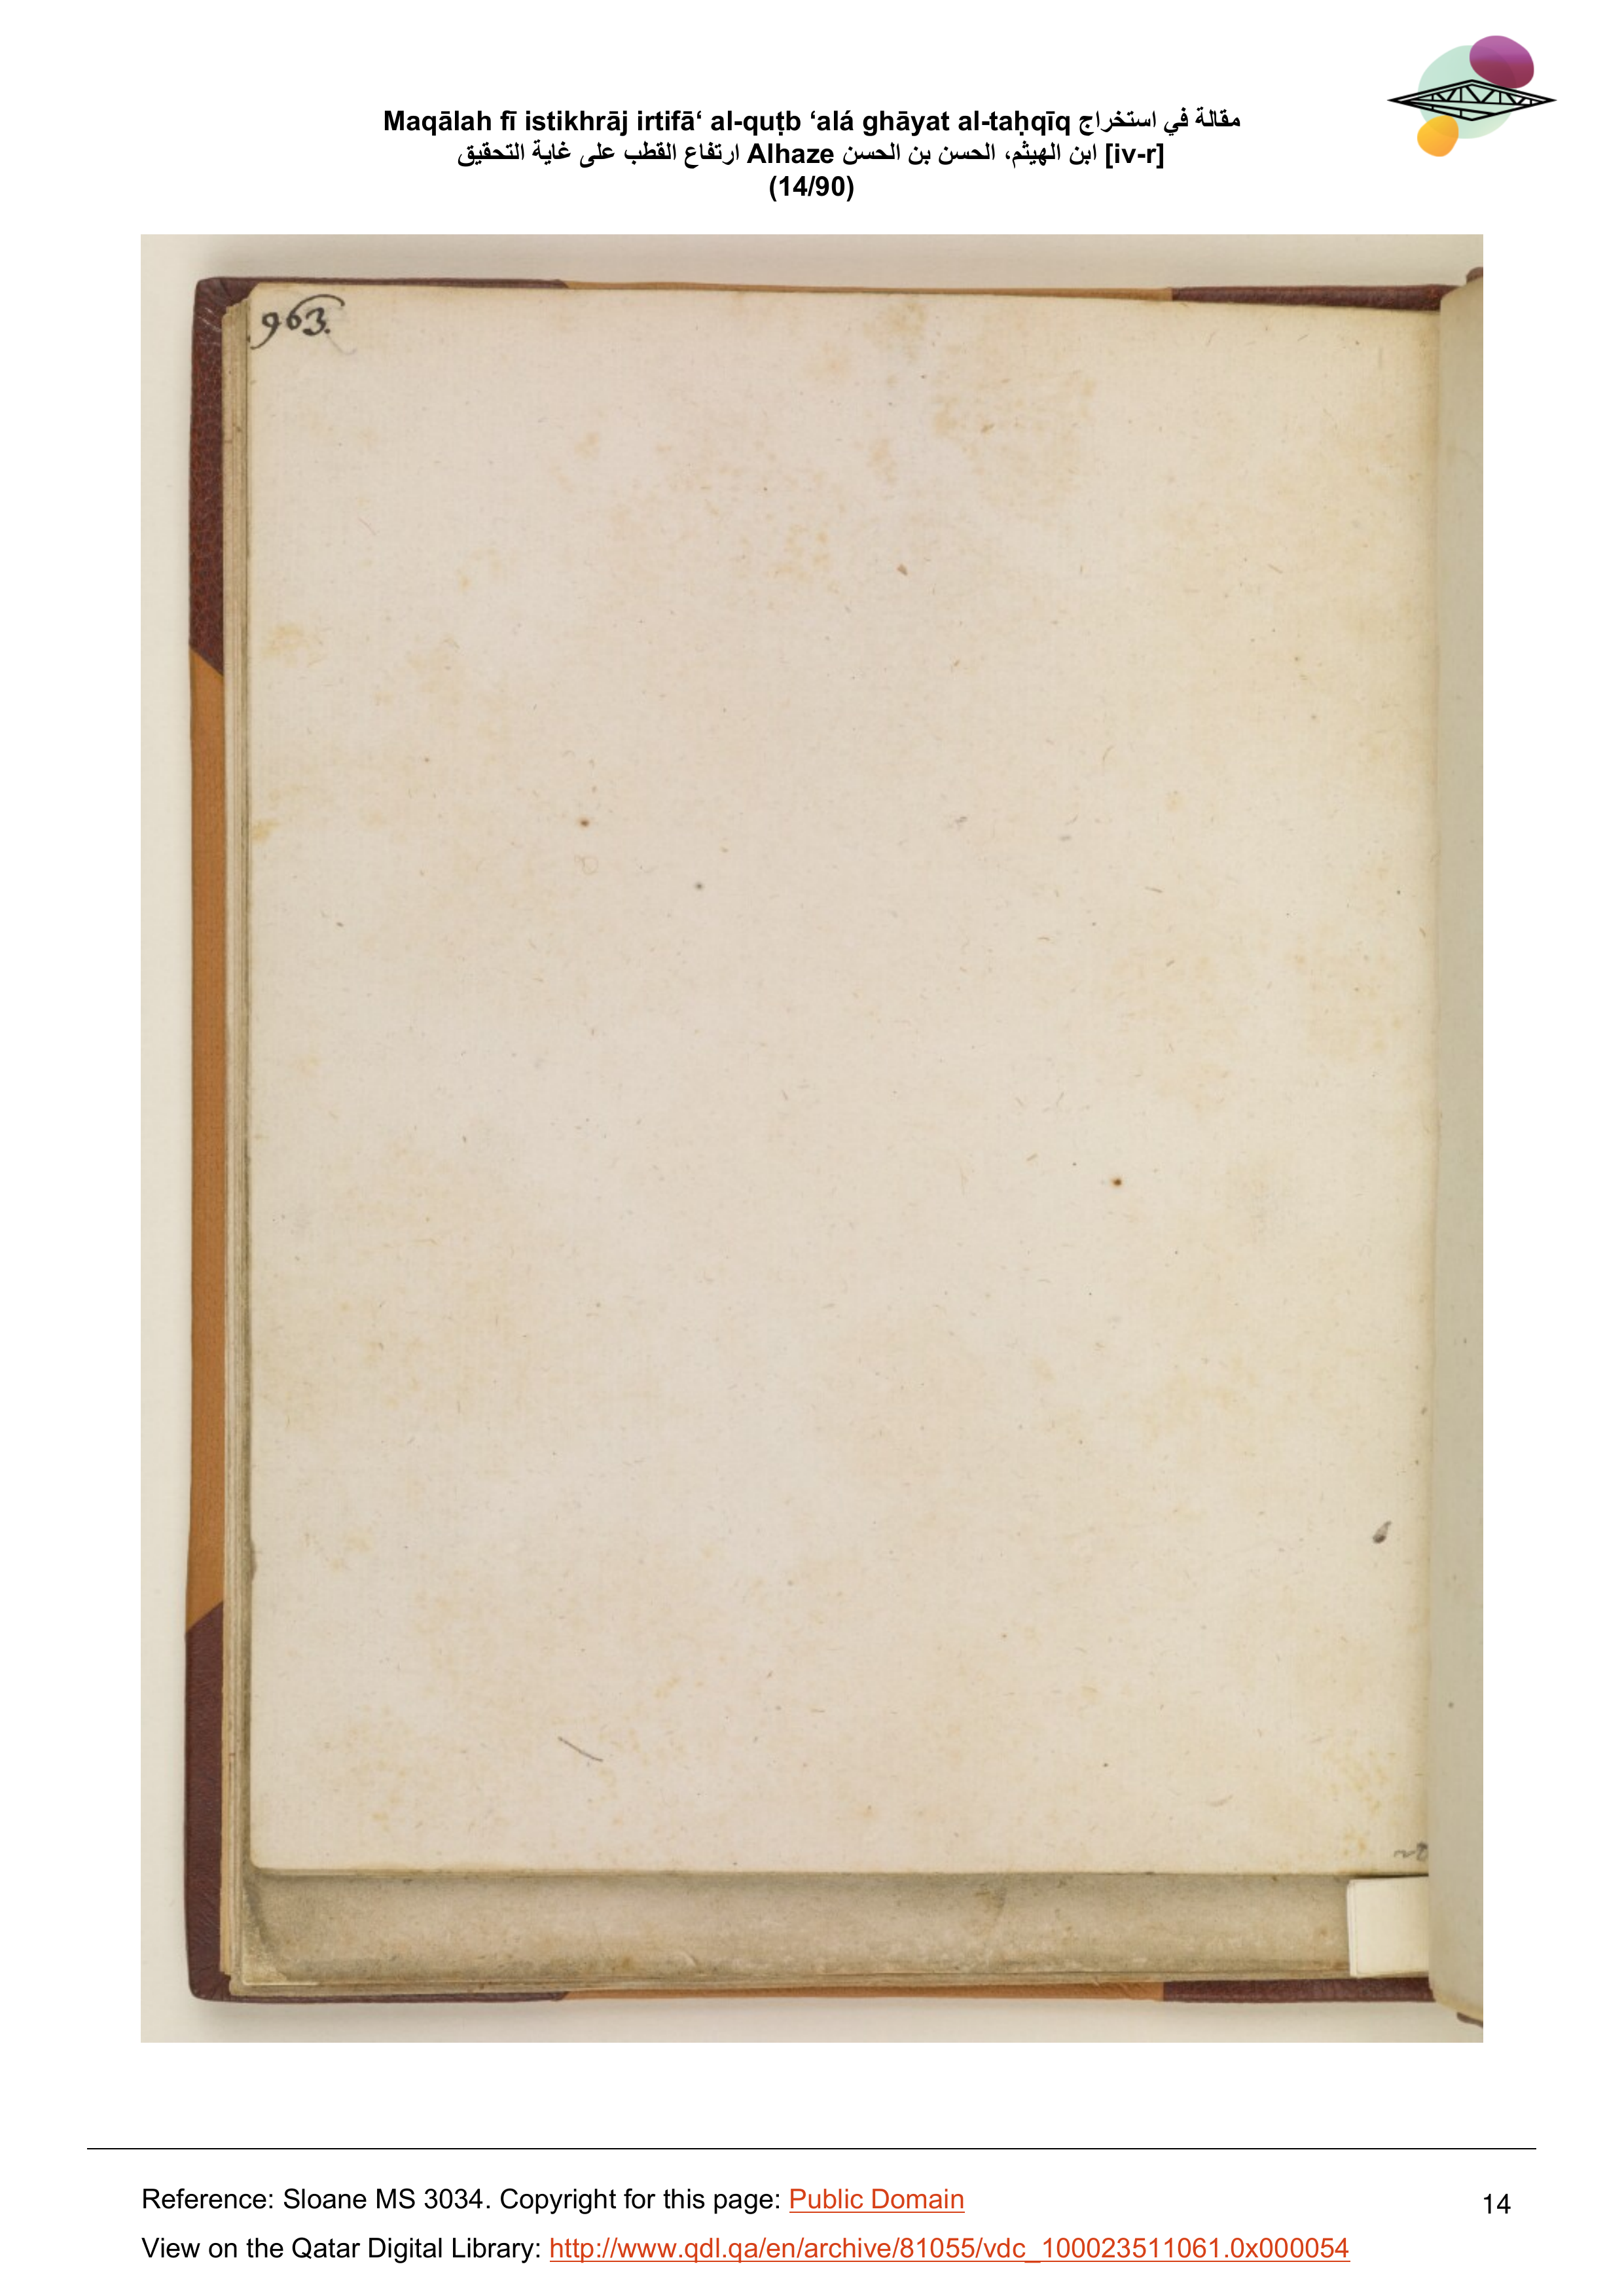 Maqālah fī istikhrāj irtifā‘ al-quṭb ‘alá ghāyat al-taḥqīq مقالة في استخراج
ارتفاع القطب على غاية التحقيق Alhaze ابن الهيثم، الحسن بن الحسن [iv-r]
(14/90)
963.
Reference: Sloane MS 3034. Copyright for this page: Public Domain
14
View on the Qatar Digital Library: http://www.qdl.qa/en/archive/81055/vdc_100023511061.0x000054